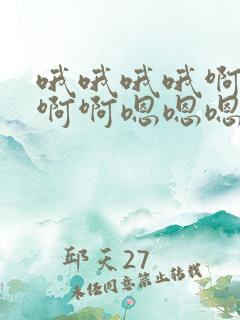 哦哦哦哦啊
啊啊嗯嗯嗯
邱天27
未经同意禁止转载